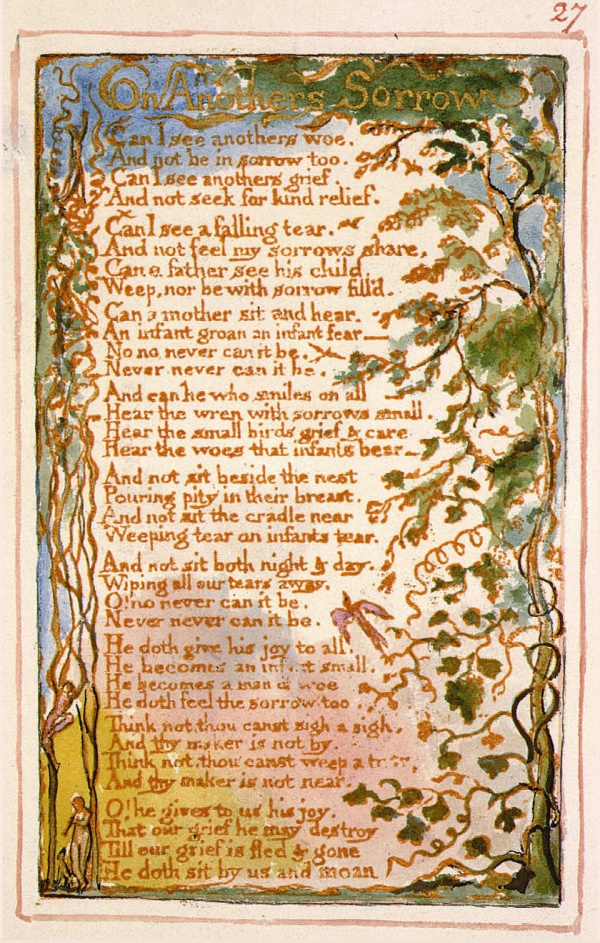 27
On Anothers Sorrow
Can I see anothers woe.
And not be in sorrow too.
Can I see anothers grief.
And not seek for kind relief.
Can I see a falling tear.
And not feel my sorrows share,
Can a father see his child
Weep, nor be with sorrow fill'd.
Can a mother sit and hear.
An infant groan an infant fear
No no never can it be.
Never never can it be.
And can he who smiles on all
Hear the wren with sorrows small.
Hear the small birds grief & care
Hear the woes that infants bear
And not sit beside the nest
Pouring pity in their breast.
And not sit the cradle near
Weeping tear on infants tear.
And not sit both night & day.
Wiping all our tears away.
O! no never can it be.
Never never can it be.
He doth give his joy to all.
He becomes an infant small.
He becomes a man of woe
He doth feel the sorrow too.
Think not thou canst sigh a sigh,
And thy maker is not by.
Think not thou canst weep a tear,
And thy maker is not near.
O! he gives to us his joy.
That our grief he may destroy
Till our grief is fled & gone
He doth sit by us and moan